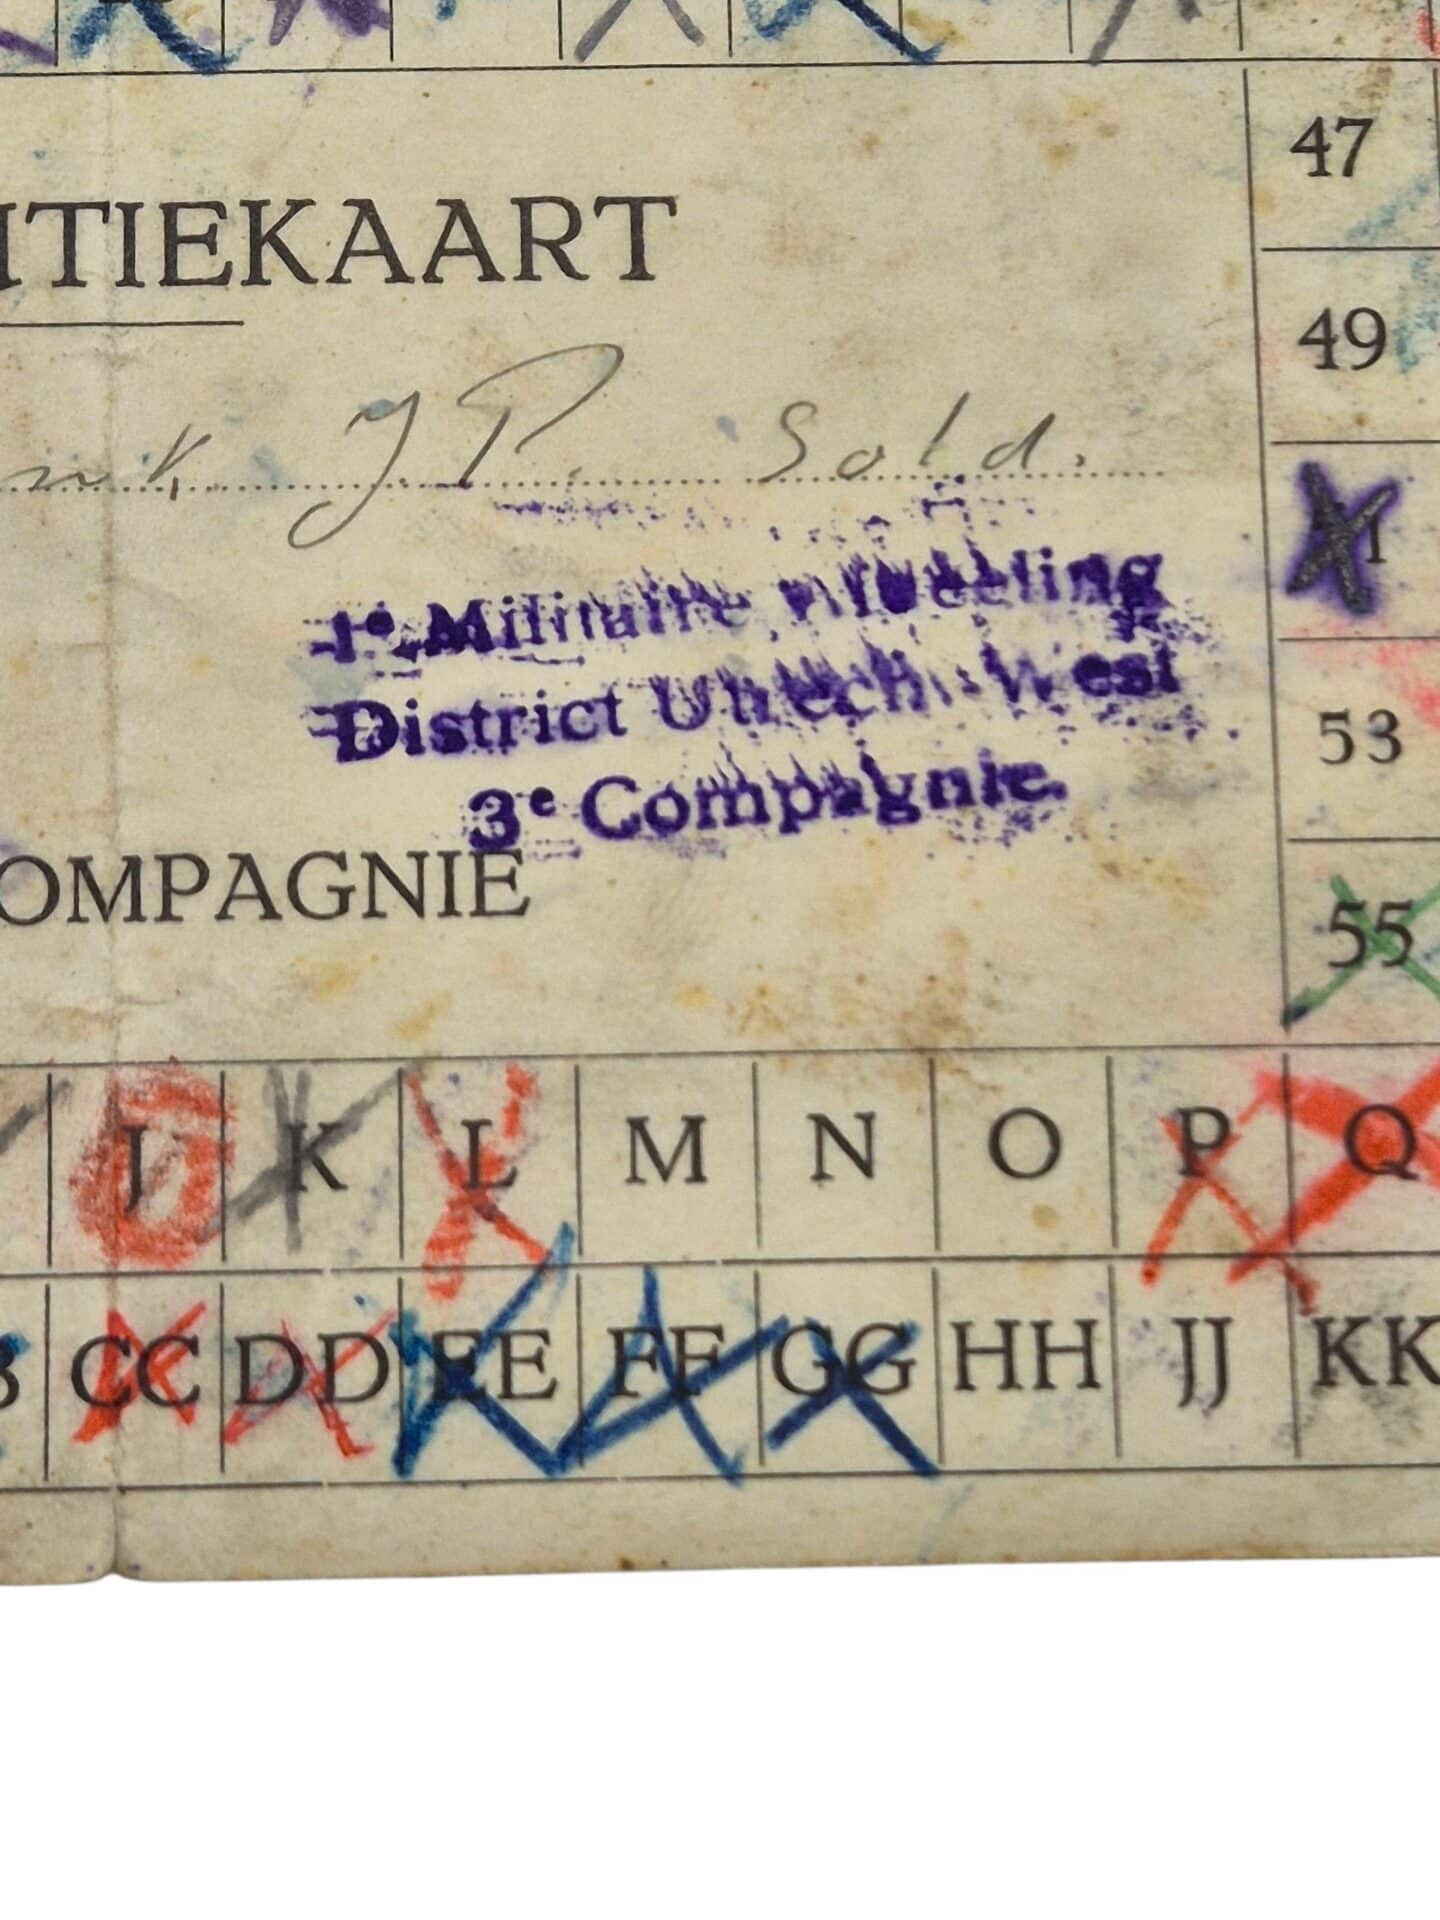 47
ITIEKAART
49
nk J P. Sold.
1e Militaire Afdeeling
District Utrecht-West
3e Compagnie.
53
OMPAGNIE
55
J K L M N O P Q
CC DD EE FF GG HH JJ KK